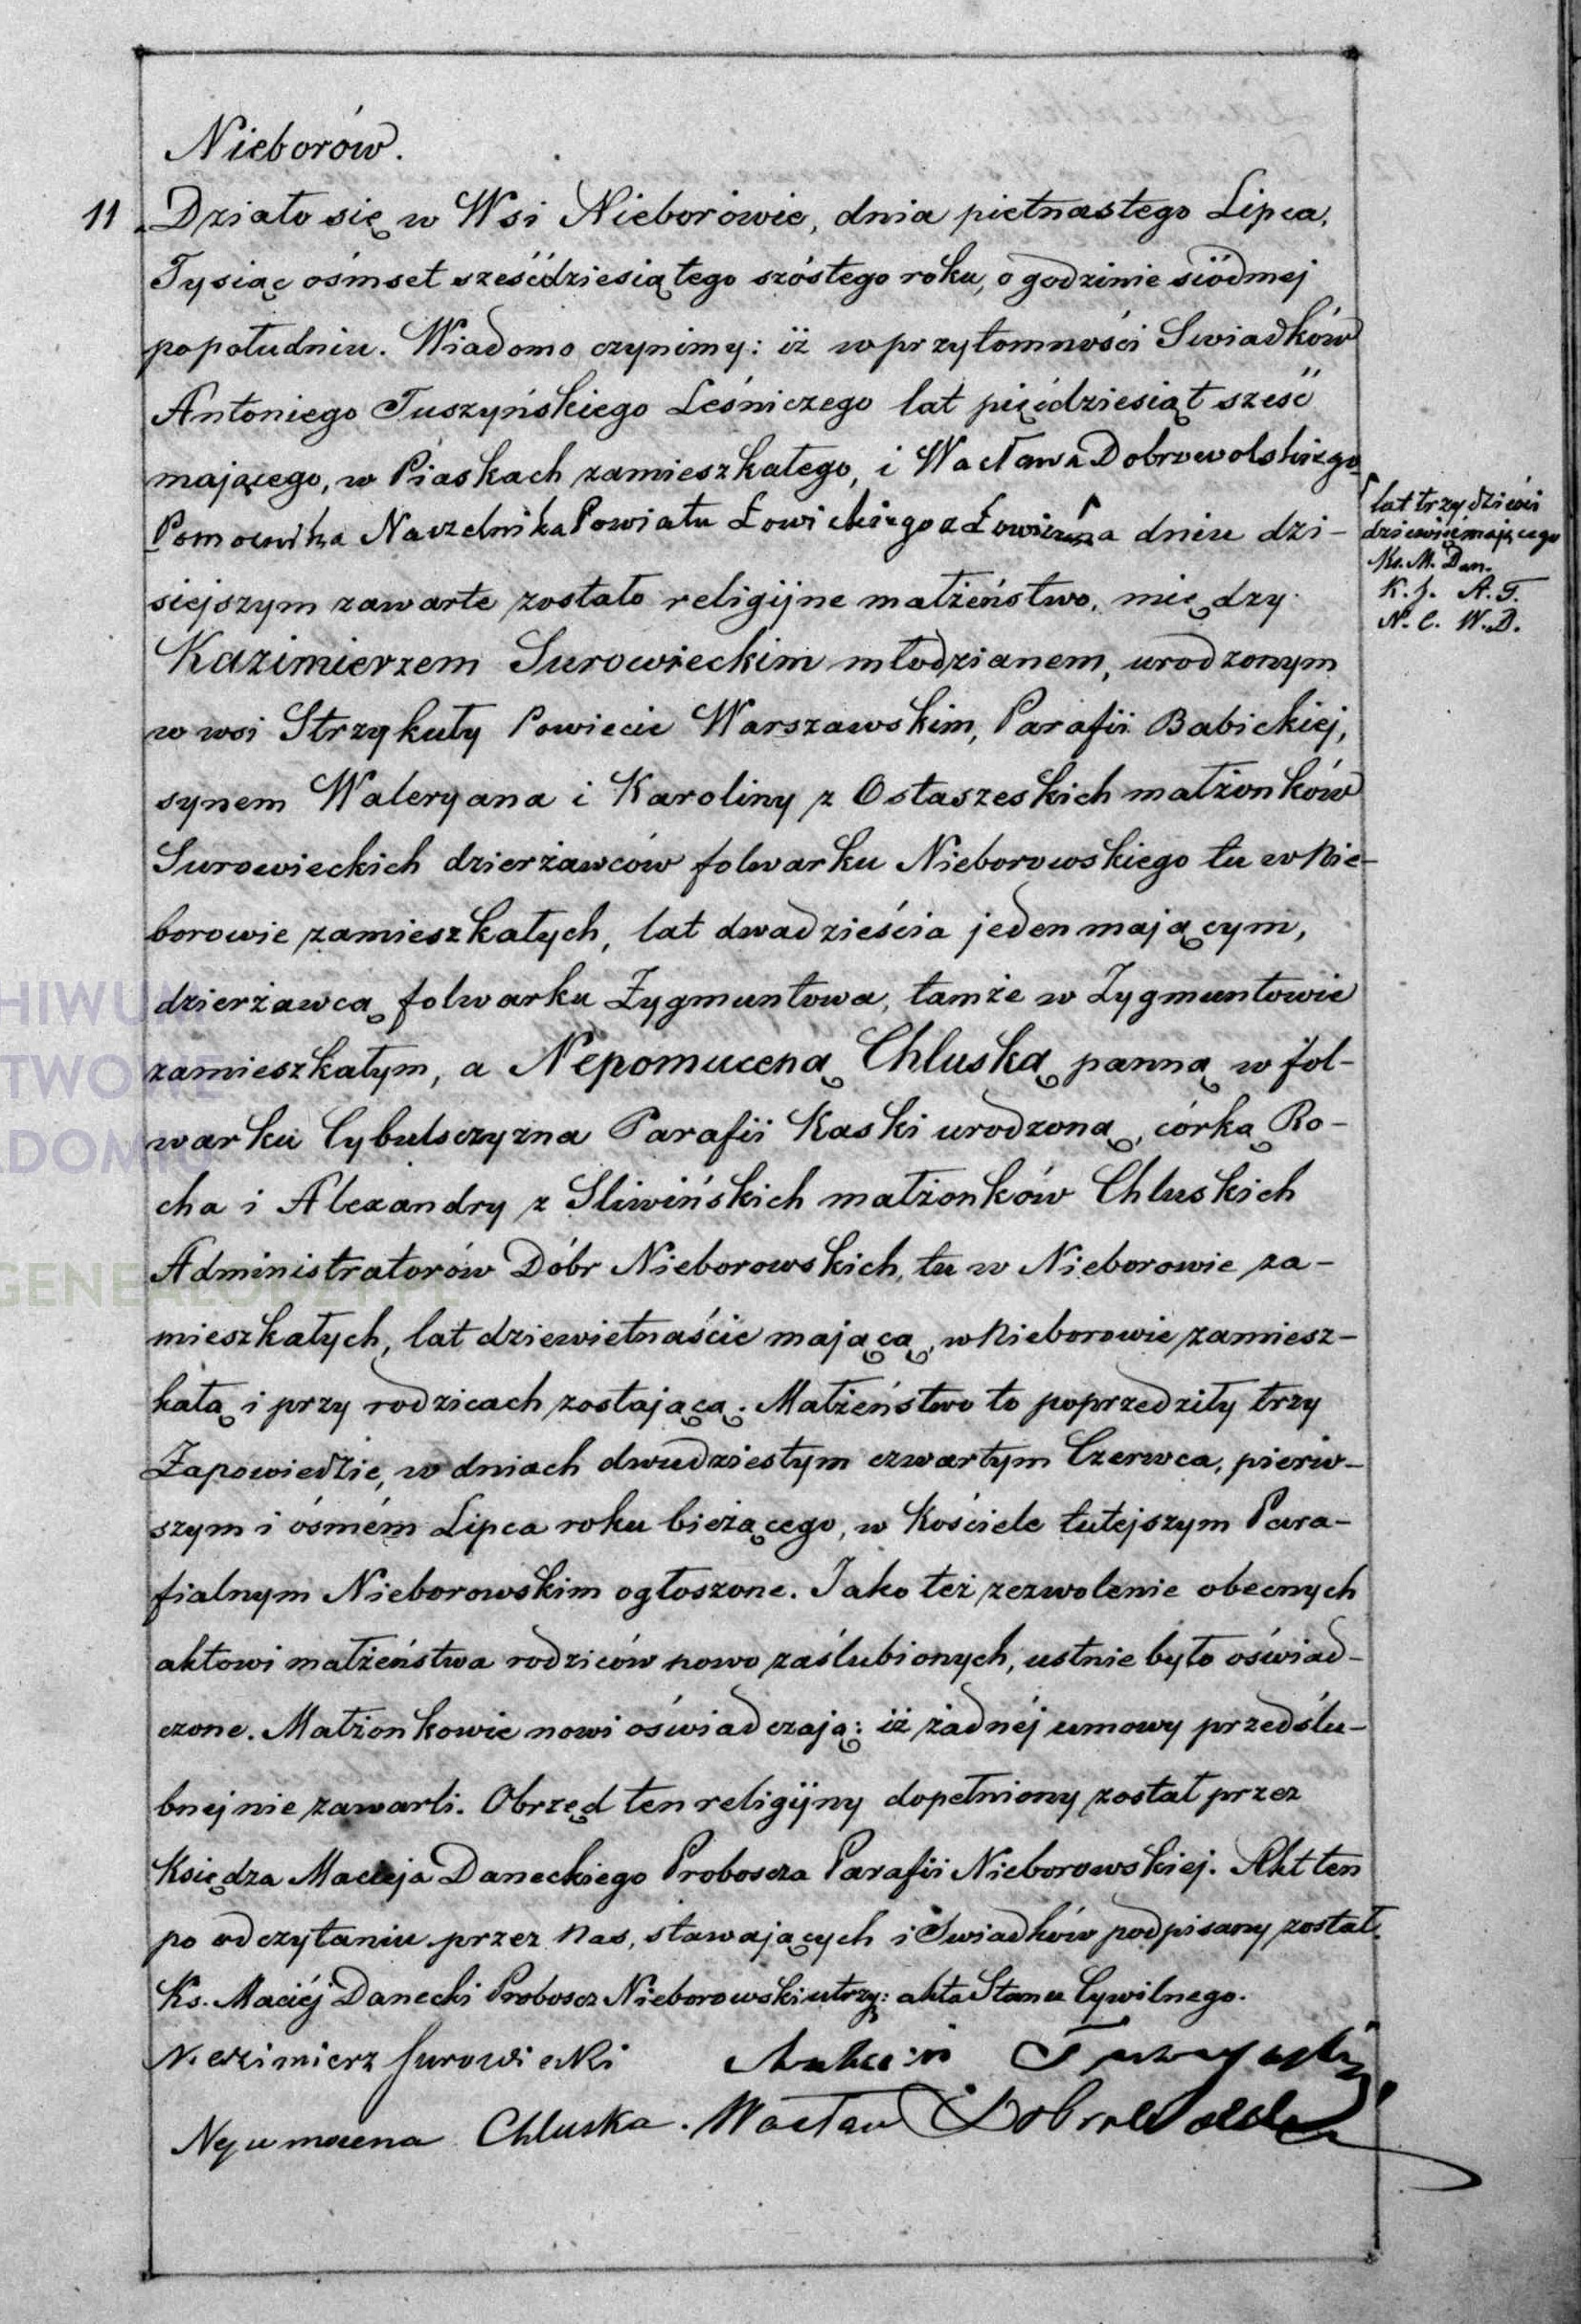 Nieborów.
11 Działo się w Wsi Nieborówie, dnia pietnastego Lipca,
Tysiąc ośmset sześćdziesiątego szóstego roku, o godzinie siódmej
popołudniu. Wiadomo czynimy: iż w przytomności Swiadków
Antoniego Tuszyńskiego Leśniczego lat pięćdziesiąt sześć
mającego, w Piaskach zamieszkałego, i Wacława Dobrowolskiego
Pomocnika Naczelnika Powiatu Łowickiego z Łowicza dniu dzi-
lat trzydzieści
dziewięć mającego
Ks. M. Dan.
K. S. A. T.
N. C. W. D.
siejszym zawarte zostało religijne małżeństwo, między
Kazimierzem Surowieckim młodzianem, urodzonym
w wsi Strzykuły Powiecie Warszawskim, Parafii Babickiej,
synem Waleryana i Karoliny z Ostaszeskich małżonków
Surowieckich dzierżawców folwarku Nieborowskiego tu w Nie-
borowie zamieszkałych, lat dwadzieścia jeden mającym,
dzierżawcą folwarku Zygmuntowa, tamże w Zygmuntowie
zamieszkałym, a Nepomuceną Chluską panną w fol-
warku Cybulsczyzna Parafii Kaski urodzoną, córką Ro-
cha i Alexandry z Sliwińskich małżonków Chluskich
Administratorów Dóbr Nieborowskich, tu w Nieborowie za-
mieszkałych, lat dziewietnaście mającą, w Nieborowie zamiesz-
kałą i przy rodzicach zostającą. Małżeństwo to poprzedziły trzy
Zapowiedzie, w dniach dwudziestym czwartym Czerwca, pierw-
szym i ósmém Lipca roku bieżącego, w Kościele tutejszym Para-
fialnym Nieborowskim ogłoszone. Jako też zezwolenie obecnych
aktowi małżeństwa rodziców nowo zaślubionych, ustnie było oświad-
czone. Małżonkowie nowi oświadczają: iż żadnéj umowy przedślu-
bnej nie zawarli. Obrzęd ten religijny dopełniony został przez
Księdza Macieja Daneckiego Proboscza Parafii Nieborowskiej. Akt ten
po odczytaniu przez Nas, stawających i Swiadków podpisany został.
Ks. Maciéj Danecki Proboscz Nieborowski utrzy: akta Stanu Cywilnego.
Kazimierz Surowiecki Antoni Tuszyński
Nepumucena Chluska. Wacław Dobrowolski
HIWUM
TWOWE
ADOMIU
GENEALODZY.PL